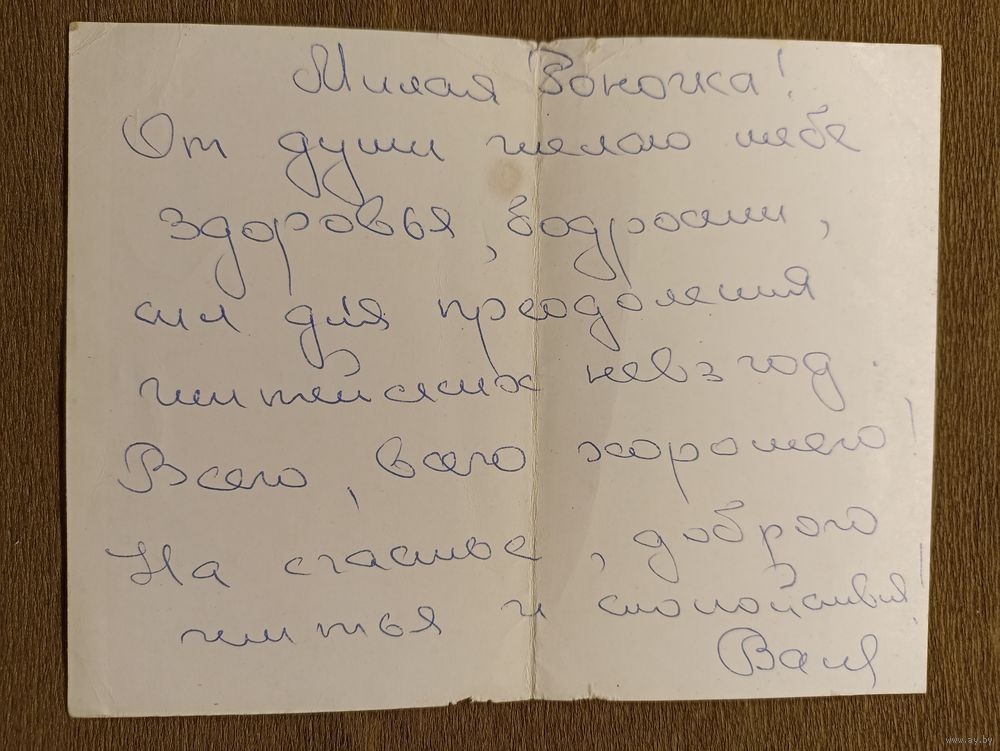 Милая Зоночка!
От души желаю тебе
здоровья, бодрости,
сил для преодоления
житейских невзгод.
Всего, всего хорошего!
На счастье, доброго
житья и спокойствия!
Валя
www.ay.by